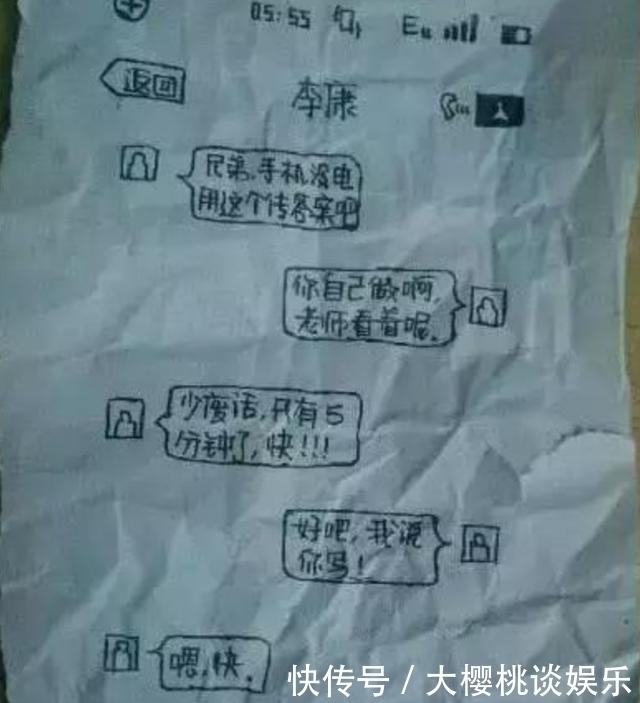 05:55
返回
李康
兄弟,手机没电
用这个传答案吧
你自己做啊,
老师看着呢.
少废话,只有5
分钟了,快!!!
好吧,我说
你写!
嗯,快.
快传号 / 大樱桃谈娱乐